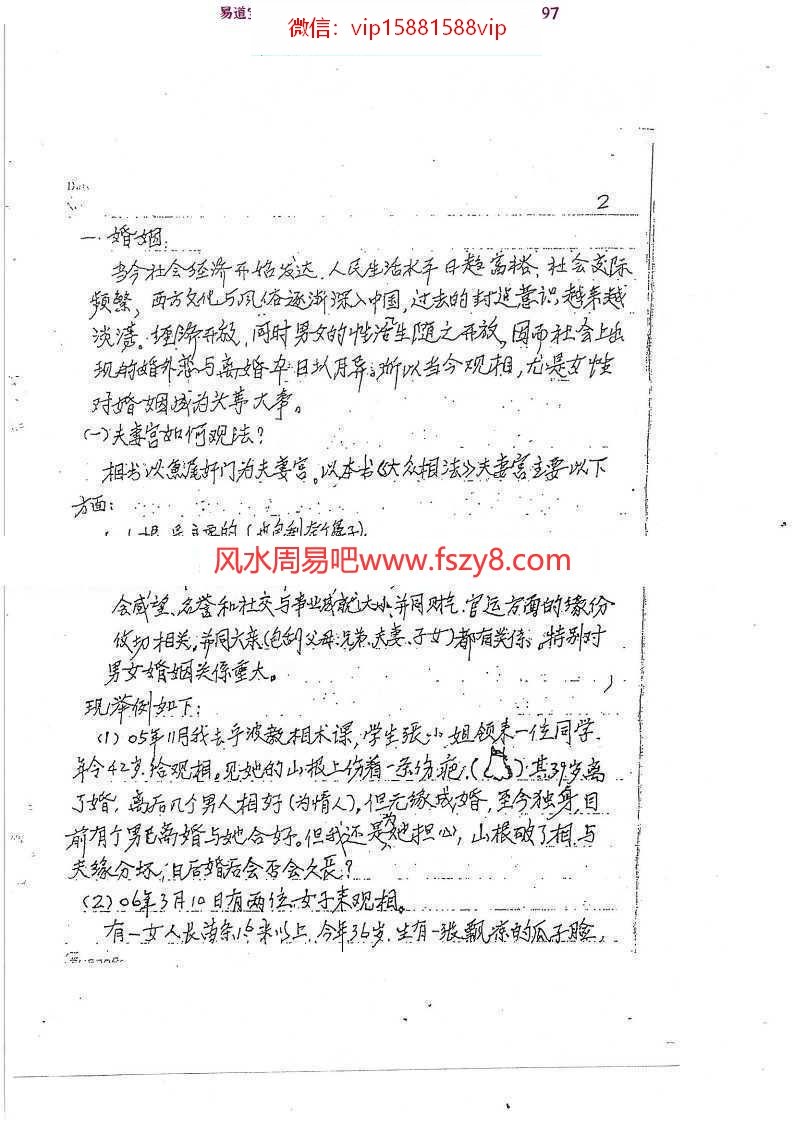 易道 97
微信：vip15881588vip
2
一.婚姻:
当今社会经济开始发达.人民生活水平日趋富裕、社会交际
频繁，西方文化与风俗逐渐深入中国，过去的封建意识越来越
淡薄。经济开放，同时男女的性活生随之开放。因而社会上出
现的婚外恋与离婚率日以月异。所以当今观相，尤是女性
对婚姻成为头等大事。
(一)夫妻宫如何观法？
相书以鱼尾奸门为夫妻宫。以本书《大众相法》夫妻宫主要以下
方面：
风水周易吧www.fszy8.com
会威望、名誉和社交与事业成就大小.并同财气.官运方面的缘份
密切相关。并同六亲(包刮父母.兄弟.夫妻、子女)都有关係。特别对
男女婚姻关係重大。
现举例如下：
(1) 05年11月我去宁波教相术课，学生张小姐领来一位同学.
年令42岁.给观相。见她的山根上伤着一条伤疤.( ).其39岁离
了婚，离后几个男人相好(为情人)，但无缘成婚.至今独身.目
前有个男已离婚与她合好。但我还是为她担心，山根破了相.与
夫缘分坏，日后婚后会否会久长？
(2) 06年3月10日有两位女子来观相。
有一女人长苗条1.6米以上.今年36岁.生有一张飘凉的瓜子脸，